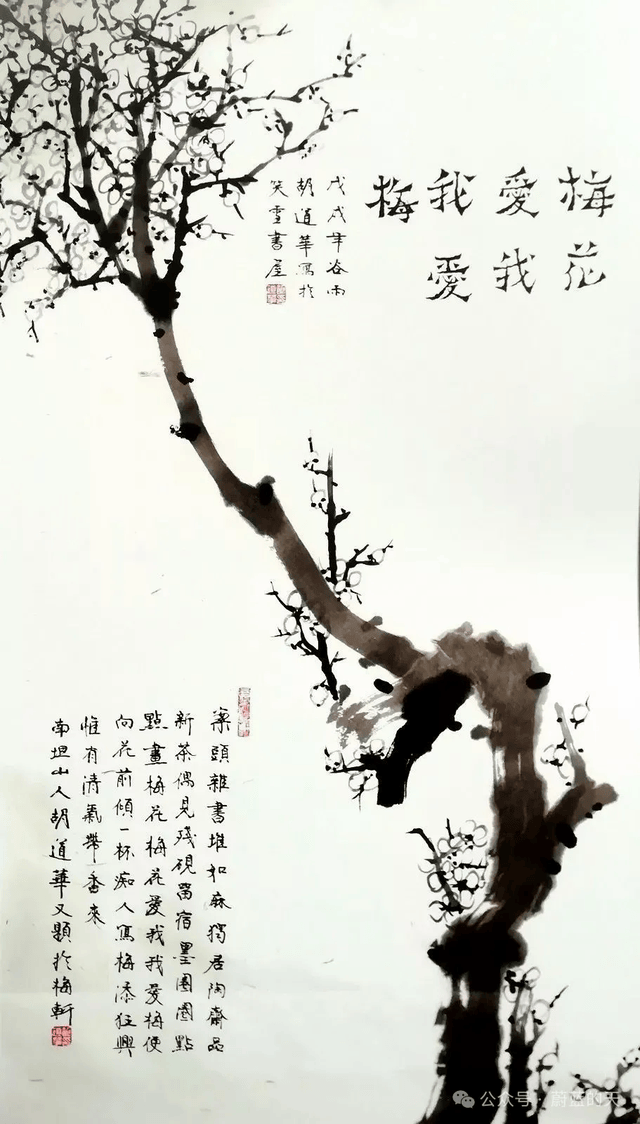 梅花
愛我
我愛
梅
戊戌年谷雨
胡道華寫於
笑雪書屋
案頭雜書堆如麻獨居陶齋品
新茶偶見殘硯留宿墨圈圈點
點畫梅花梅花愛我我愛梅便
向花前傾一杯痴人寫梅添狂興
惟有清氣帶香來
南坦山人胡道華又題於梅軒
公众号·蔚蓝的天